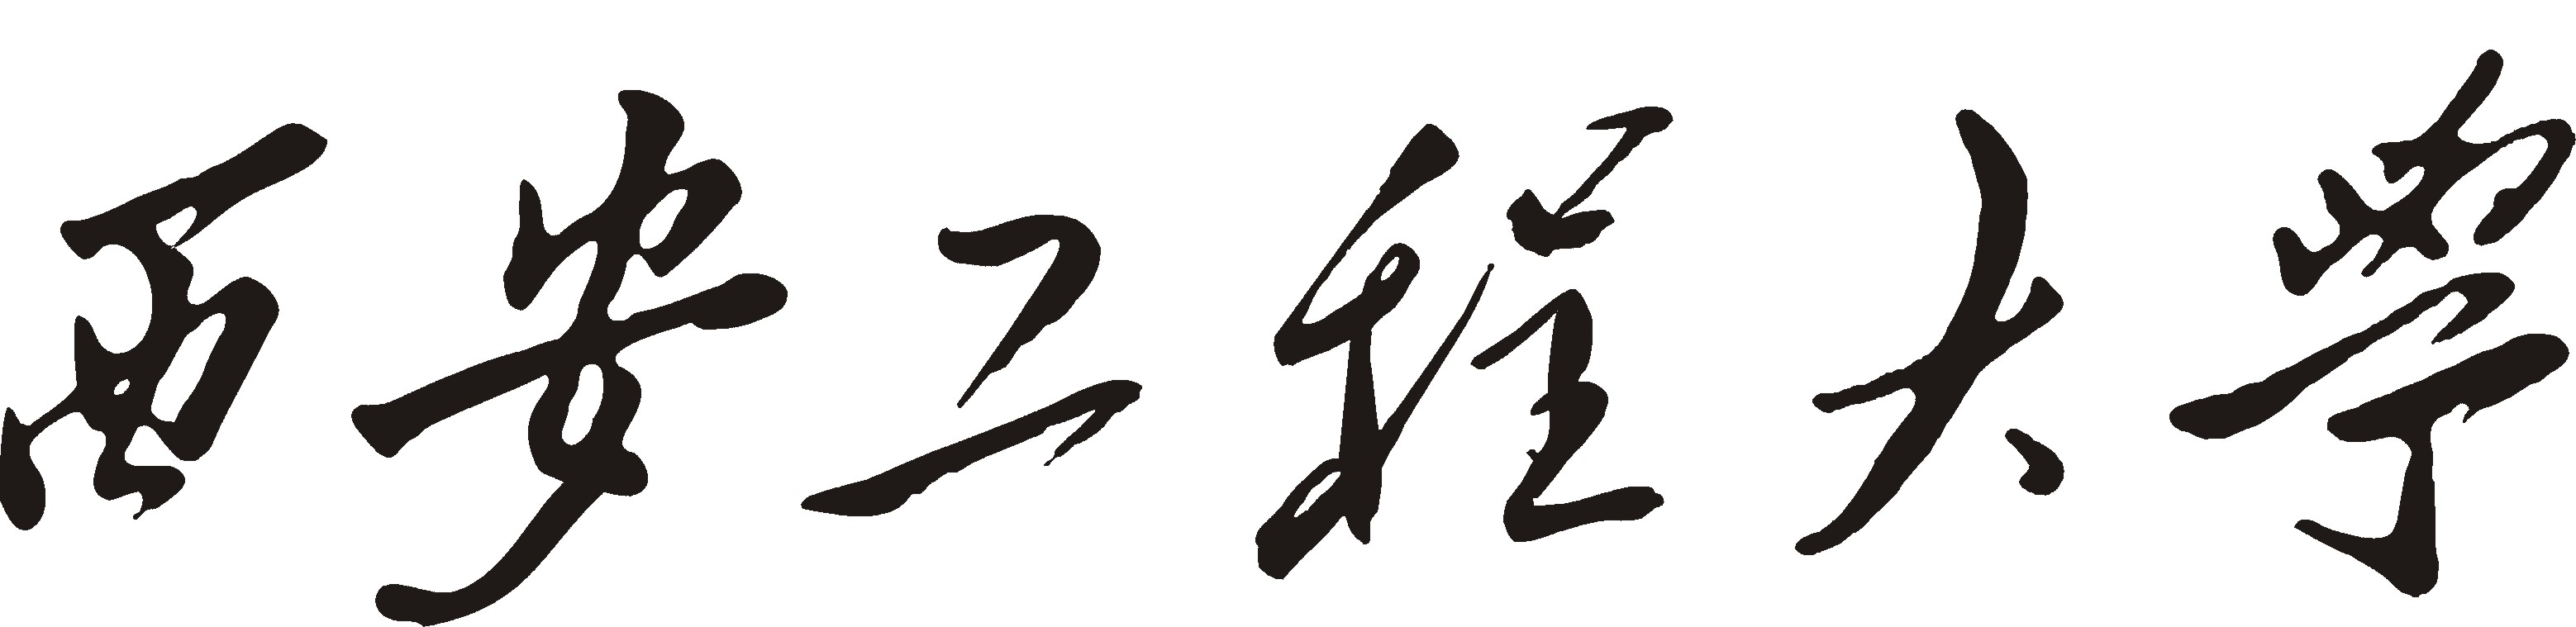 西安工程大學